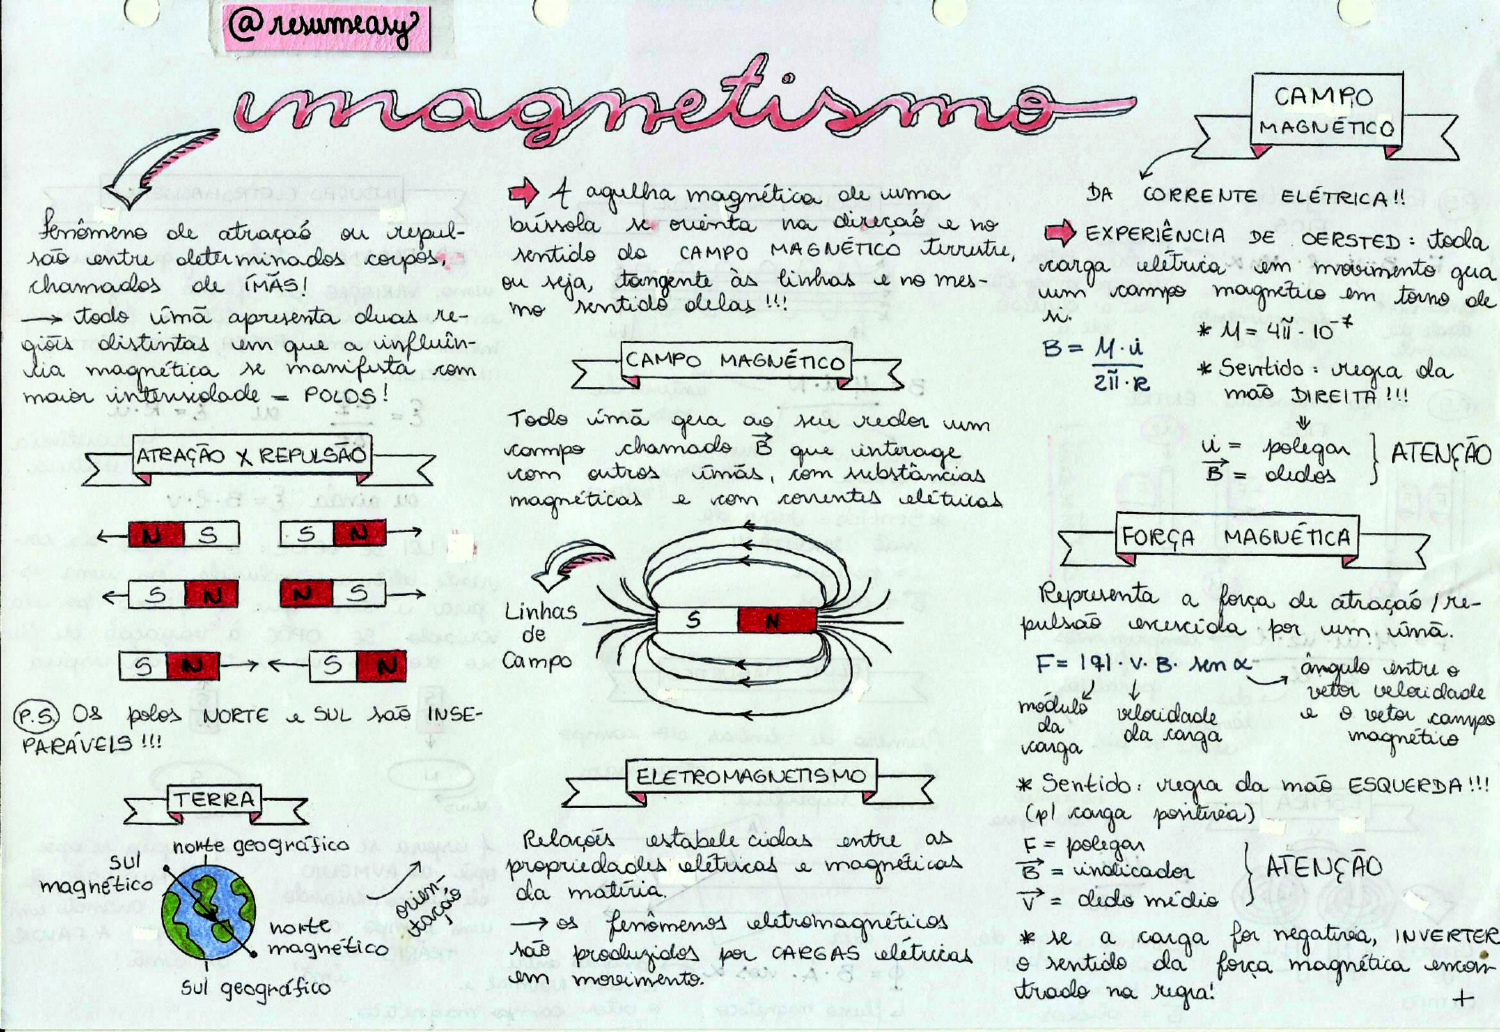 @resumeasy
magnetismo
Fenômeno de atração ou repul-
são entre determinados corpos,
chamados de ÍMÃS!
→ todo ímã apresenta duas re-
giões distintas em que a influên-
cia magnética se manifesta com
maior intensidade = POLOS!
ATRAÇÃO X REPULSÃO
N S S N
S N N S
S N S N
P.S. Os polos NORTE e SUL são INSE-
PARÁVEIS!!!
TERRA
norte geográfico
sul
magnético
norte
magnético
sul geográfico
orien-
tação
A agulha magnética de uma
bússola se orienta na direção e no
sentido do CAMPO MAGNÉTICO terrestre,
ou seja, tangente às linhas e no mes-
mo sentido delas!!!
CAMPO MAGNÉTICO
Todo ímã gera ao seu redor um
campo chamado B⃗ que interage
com outros ímãs, com substâncias
magnéticas e com correntes elétricas
Linhas
de
Campo
S N
ELETROMAGNETISMO
Relações estabelecidas entre as
propriedades elétricas e magnéticas
da matéria.
→ os fenômenos eletromagnéticos
são produzidos por CARGAS elétricas
em movimento.
CAMPO
MAGNÉTICO
DA CORRENTE ELÉTRICA!!
EXPERIÊNCIA DE OERSTED: toda
carga elétrica em movimento gera
um campo magnético em torno de
si.
B = M·i
2π·R
* M = 4π·10⁻⁷
* Sentido: regra da
mão DIREITA!!!
i = polegar
B⃗ = dedos
ATENÇÃO
FORÇA MAGNÉTICA
Representa a força de atração/re-
pulsão exercida por um ímã.
F = |q|·v·B·sen α
módulo
da
carga
velocidade
da carga
ângulo entre o
vetor velocidade
e o vetor campo
magnético
* Sentido: regra da mão ESQUERDA!!!
(p/ carga positiva)
F = polegar
B⃗ = indicador
v⃗ = dedo médio
ATENÇÃO
* se a carga for negativa, INVERTER
o sentido da força magnética encon-
trado na regra!
+